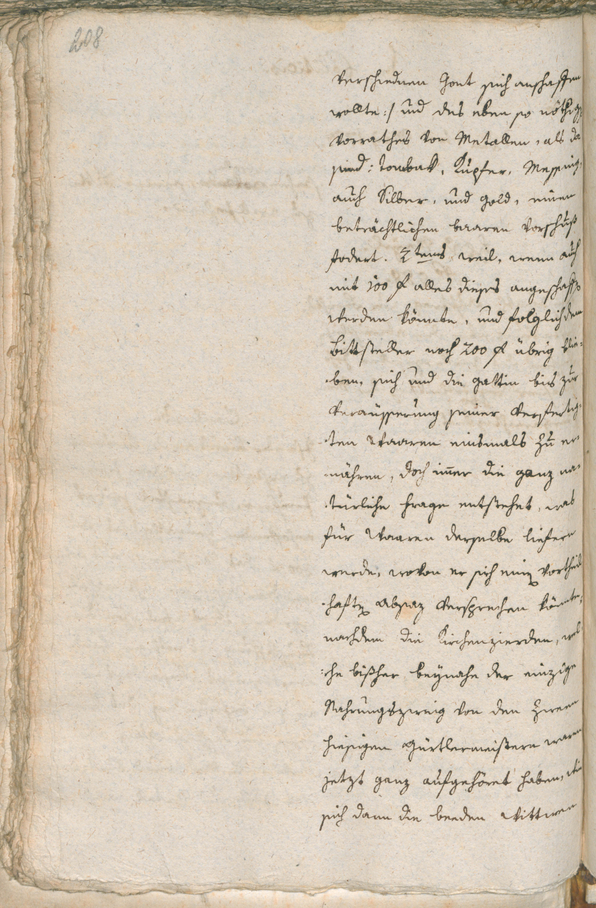 208
verschiednen Gout sich anschaffen
wollte :/ und das eben so nöthige
Vorrathes von Metallen, als da
sind: Tomback, Kupfer, Messing,
auch Silber, und Gold, einen
beträchtlichen baaren Vorschuß
fodert. 2tens weil, wenn auch
mit 100 f alles dieses angeschaft
werden könnte, und folglich dem
Bittsteller noch 200 f übrig blie-
-ben, sich und die Gattin bis zur
Veräusserung seiner verfertig-
-ten Waaren einsmals zu er-
-nähren, doch immer die ganz na-
-türliche Frage entstehet, was
für Waaren derselbe liefern
werde, wovon er sich einen vortheil-
-haften Absaz versprechen könnte,
nachdem die Kirchenzierden, wel-
-che bisher beynahe der einzige
Nahrungszweig von den zween
hiesigen Gürtlermeistern waren
jetzt ganz aufgehöret haben,
sich dann die beeden Wittwen